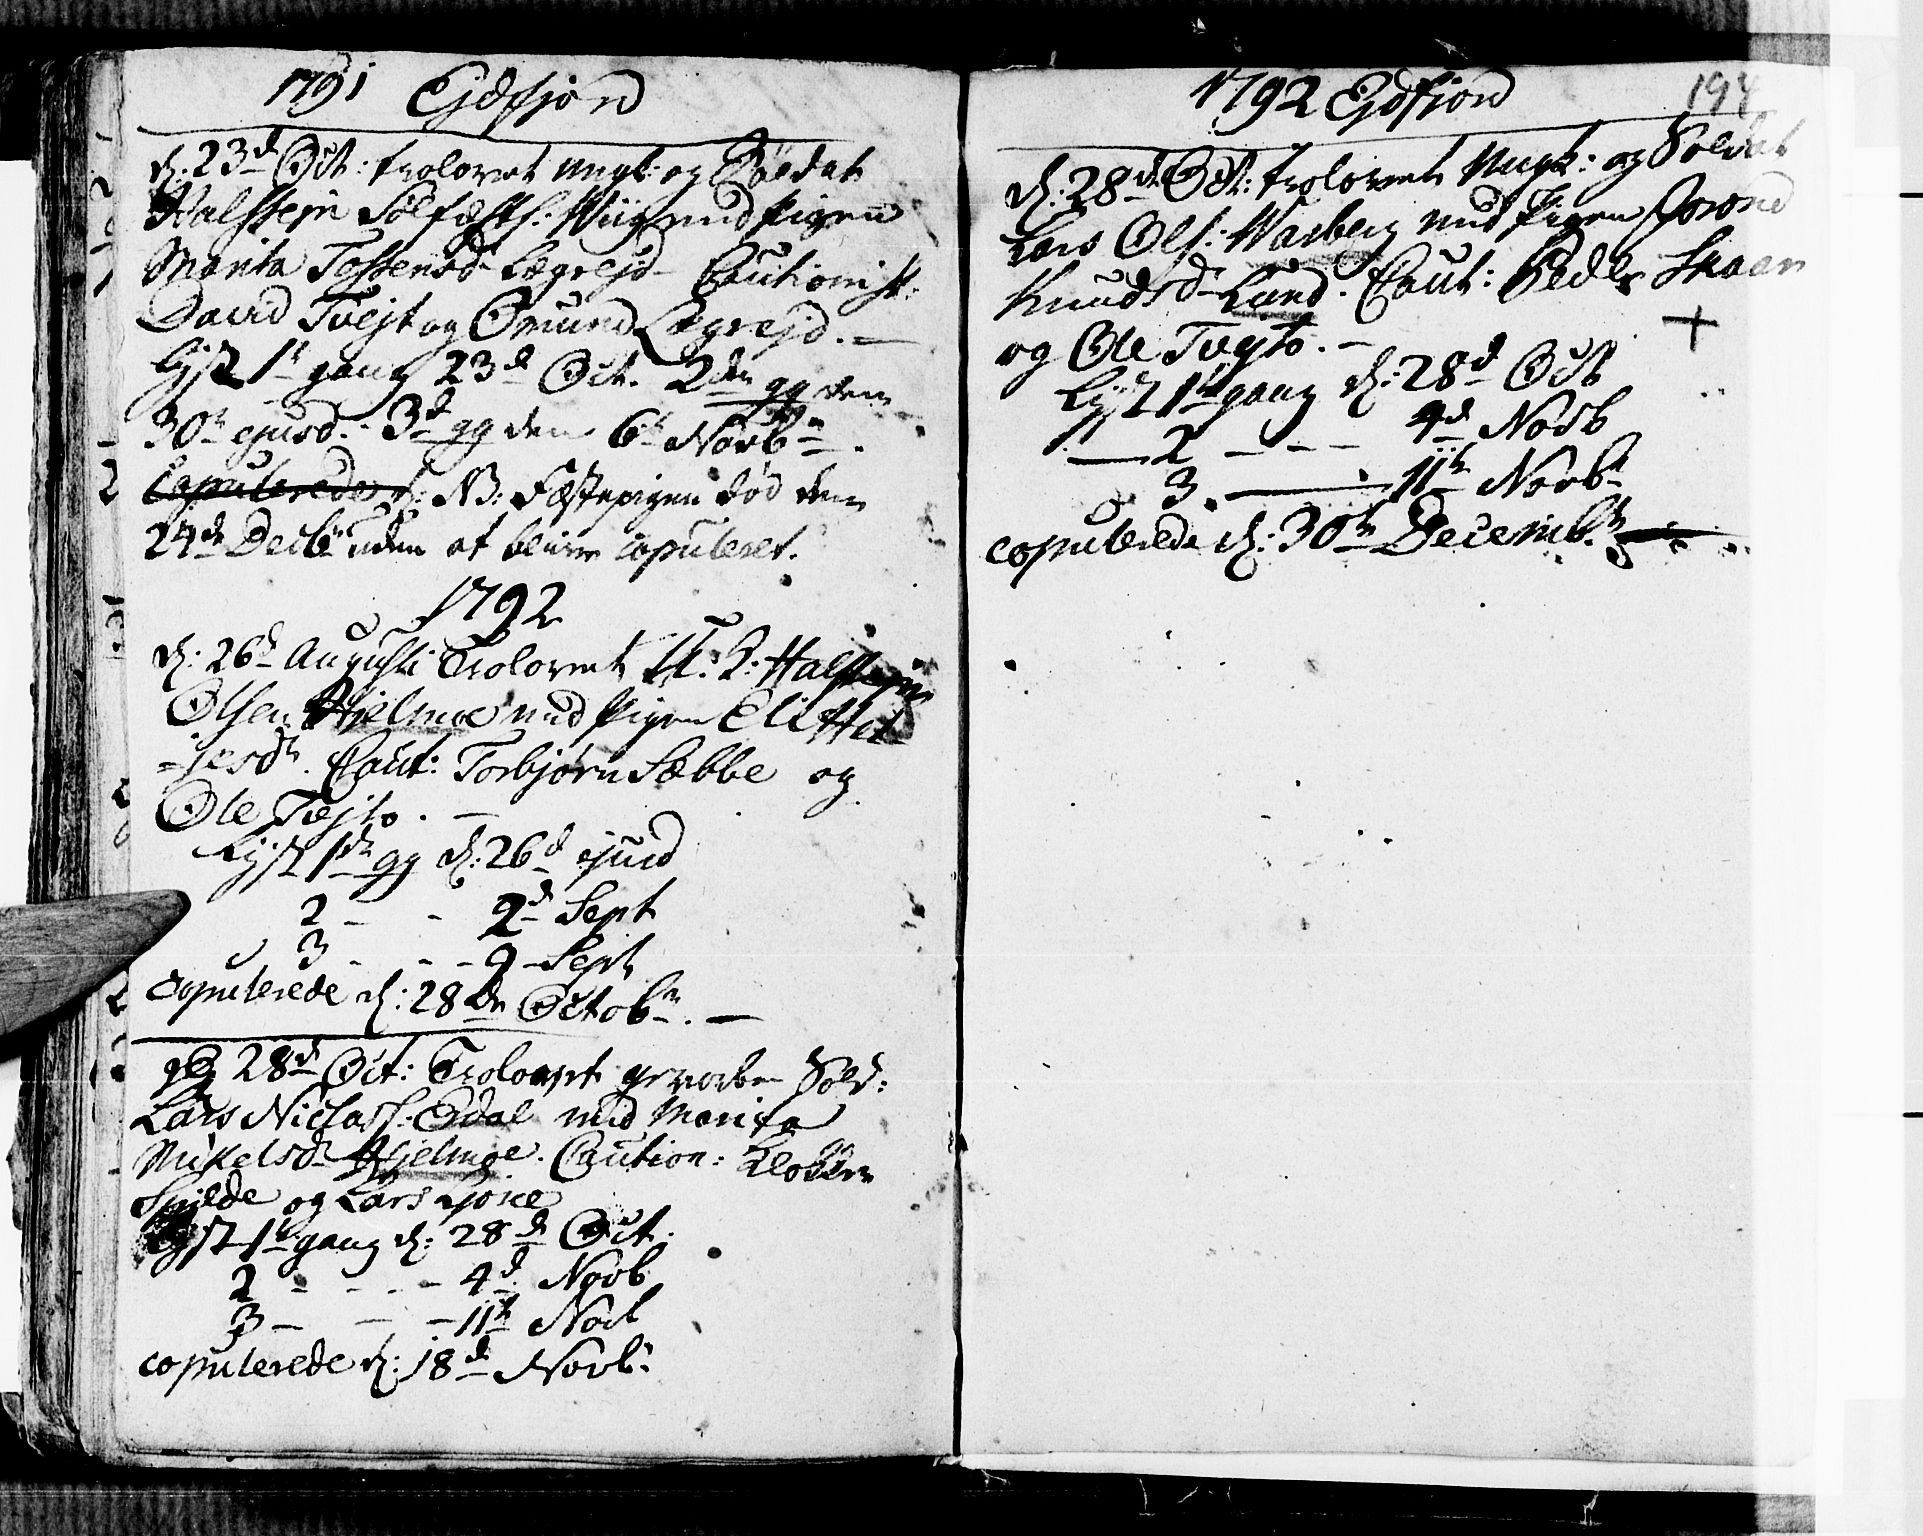 1791 Ejdfjord
d: 23d Oct: trolovet ungk: og Soldat
Halstein Sølfæsts. Wiig med Pigen
Marita Tostensd Lægrejd Cautionist:
David Tvejt og Omund Lægrejd. —
Lyst 1t gang 23d Oct. 2den gg den
30te ejusd. 3d gg den 6te Novbr.
Copulerede d: NB: Fæstepigen død den
24de Decbr uden at blive copuleret.
1792
d: 26d Augusti Trolovet U. K: Halstejn
Olsen Hjelmoe med Pigen Eli Hel-
-jesdr. Caut: Torbjørn Sæbbe og
Ole Tvejto. —
Lyst 1ste gg d: 26d ejusd
2 - - 2d Sept
3 - - - 9 Sept
copulerede d: 28de Octobr. —
d: 28d Oct: Trolovet gevorben Sold:
Lars Niclass. Erdal med Marita
Mikelsdr Hjelmoe. Caution: Klokker
Spilde og Lars Gjøre
Lyst 1t gang d: 28d Oct.
2 - - - 4d Novb
3 - - - 11te Novb
copulerede d: 18d Novb:
1792 Ejdfjord 194
d: 28de Oct: trolovet Ungk: og Soldat
Lars Ols: Warberg med Pigen Jorond
Knudsd Lund. Caut: Peder Skaar
og Ole Tvejto. —
+
Lyst 1t gang d: 28d Oct
— 2 - - - 4d Novb
3. — 11te Novbr
copulerede d: 30te Decembr.